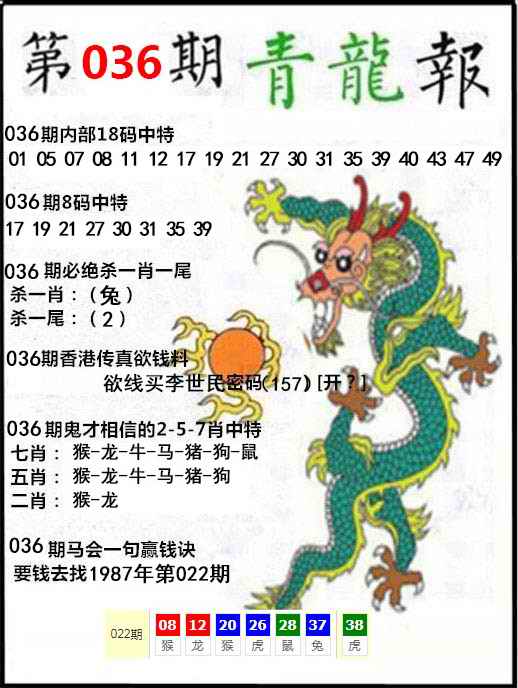 第036期青龍報
036期内部18码中特
01 05 07 08 11 12 17 19 21 27 30 31 35 39 40 43 47 49
036期8码中特
17 19 21 27 30 31 35 39
036期必绝杀一肖一尾
杀一肖：(兔)
杀一尾：(2)
036期香港传真欲钱料
欲线买李世民密码(157)[开?]
036期鬼才相信的2-5-7肖中特
七肖：猴-龙-牛-马-猪-狗-鼠
五肖：猴-龙-牛-马-猪-狗
二肖：猴-龙
036期马会一句赢钱诀
要钱去找1987年第022期
022期 08 12 20 26 28 37 38
猴 龙 猴 虎 鼠 兔 虎